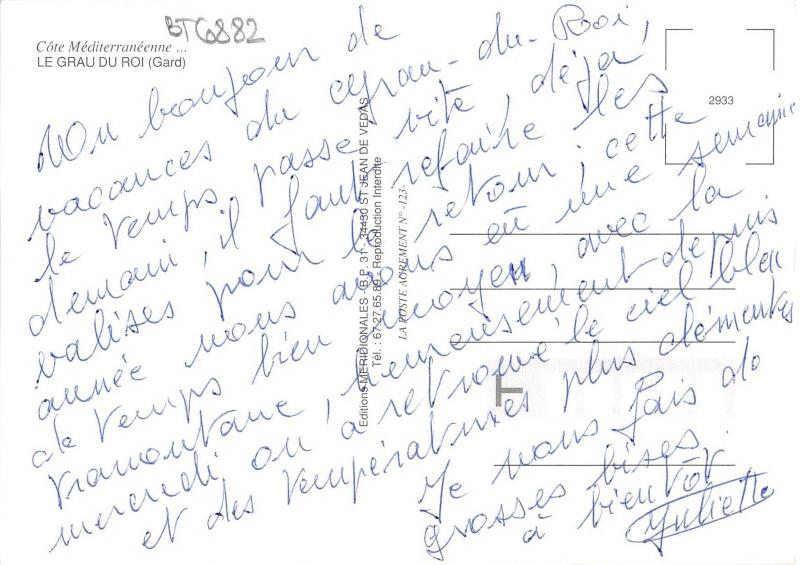 BTG882
Côte Méditerranéenne ...
LE GRAU DU ROI (Gard)
2933
Mon bonjour de
vacances du Grau-du-Roi,
le temps passe vite, déjà,
demain, il faut refaire les
valises pour le retour ; cette
année nous avons eu une semaine
de temps bien moyen, avec la
tramontane, heureusement depuis
mercredi on a retrouvé le ciel bleu
et des températures plus clémentes
Je vous fais de
grosses bises
à bientôt
Juliette
Editions MERIDIONALES - B.P. 31 - 34430 ST JEAN DE VEDAS
Tél. : 67.27.65.89 - Reproduction Interdite
LA POSTE AGREMENT N° -123-